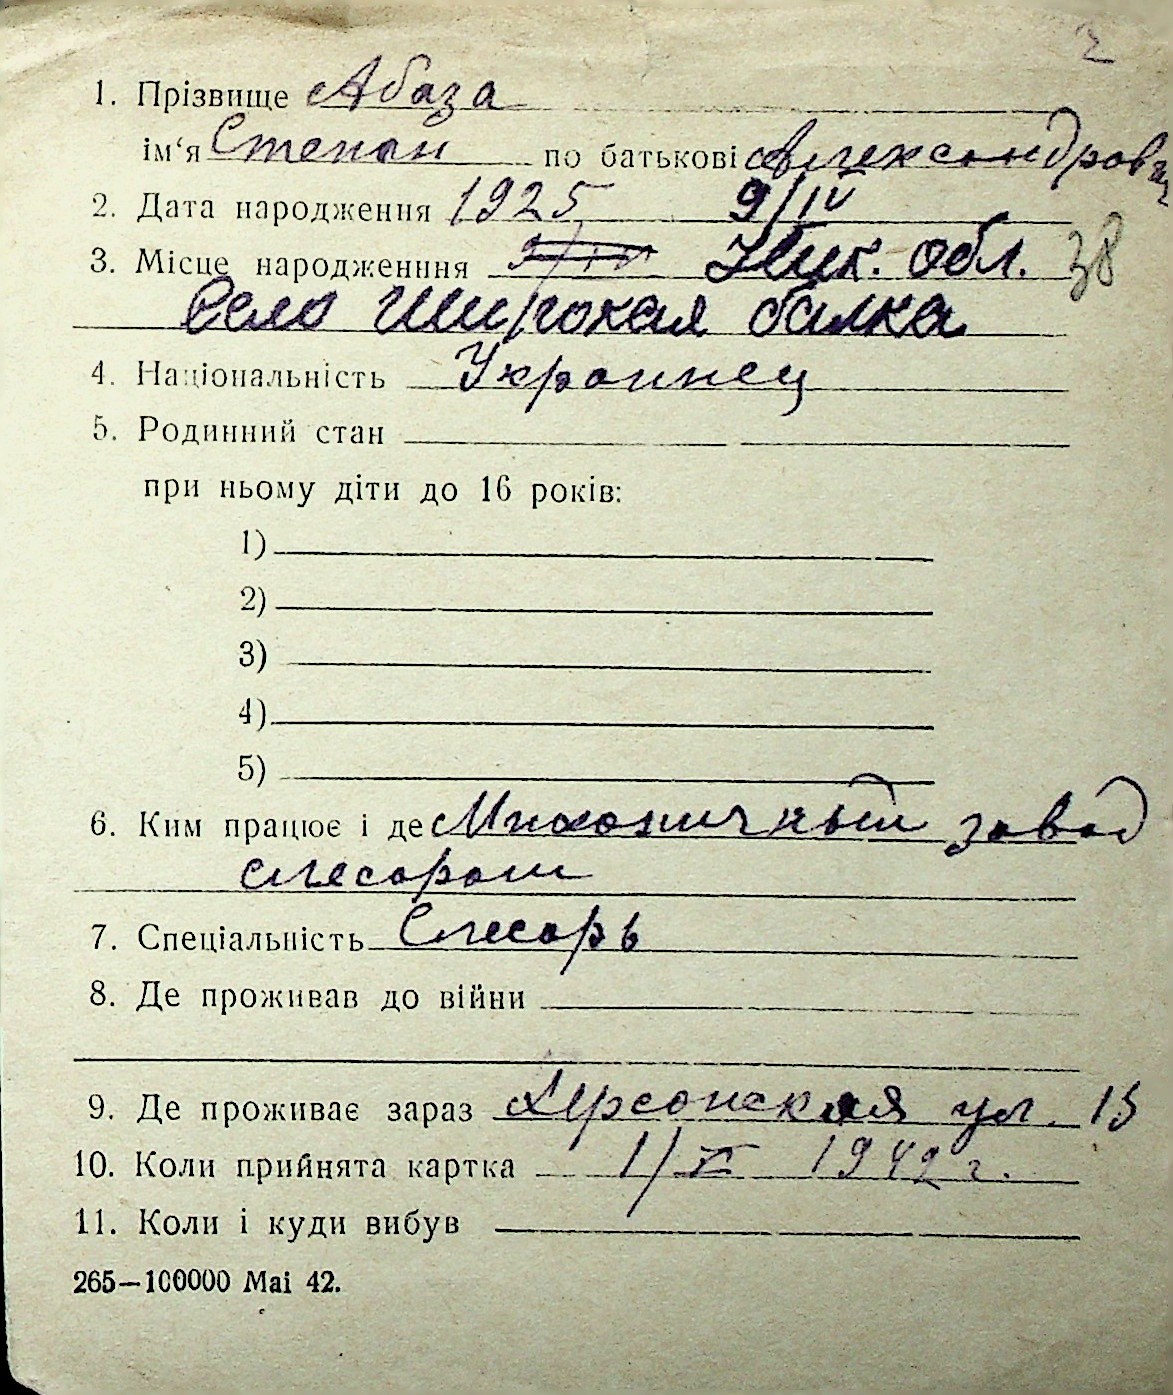 2
1. Прізвище Абаза
ім'я Степан по батькові Александрович
2. Дата народження 1925 9/IV
3. Місце народженння 9/IV Ник. обл. 38
село Широкая балка
4. Національність Украинец
5. Родинний стан
при ньому діти до 16 років:
1)
2)
3)
4)
5)
6. Ким працює і де Миханичный завод
слесаром
7. Спеціальність Слесарь
8. Де проживав до війни
9. Де проживає зараз Херсонская ул. 13
10. Коли прийнята картка 1/X 1942 г.
11. Коли і куди вибув
265—100000 Mai 42.